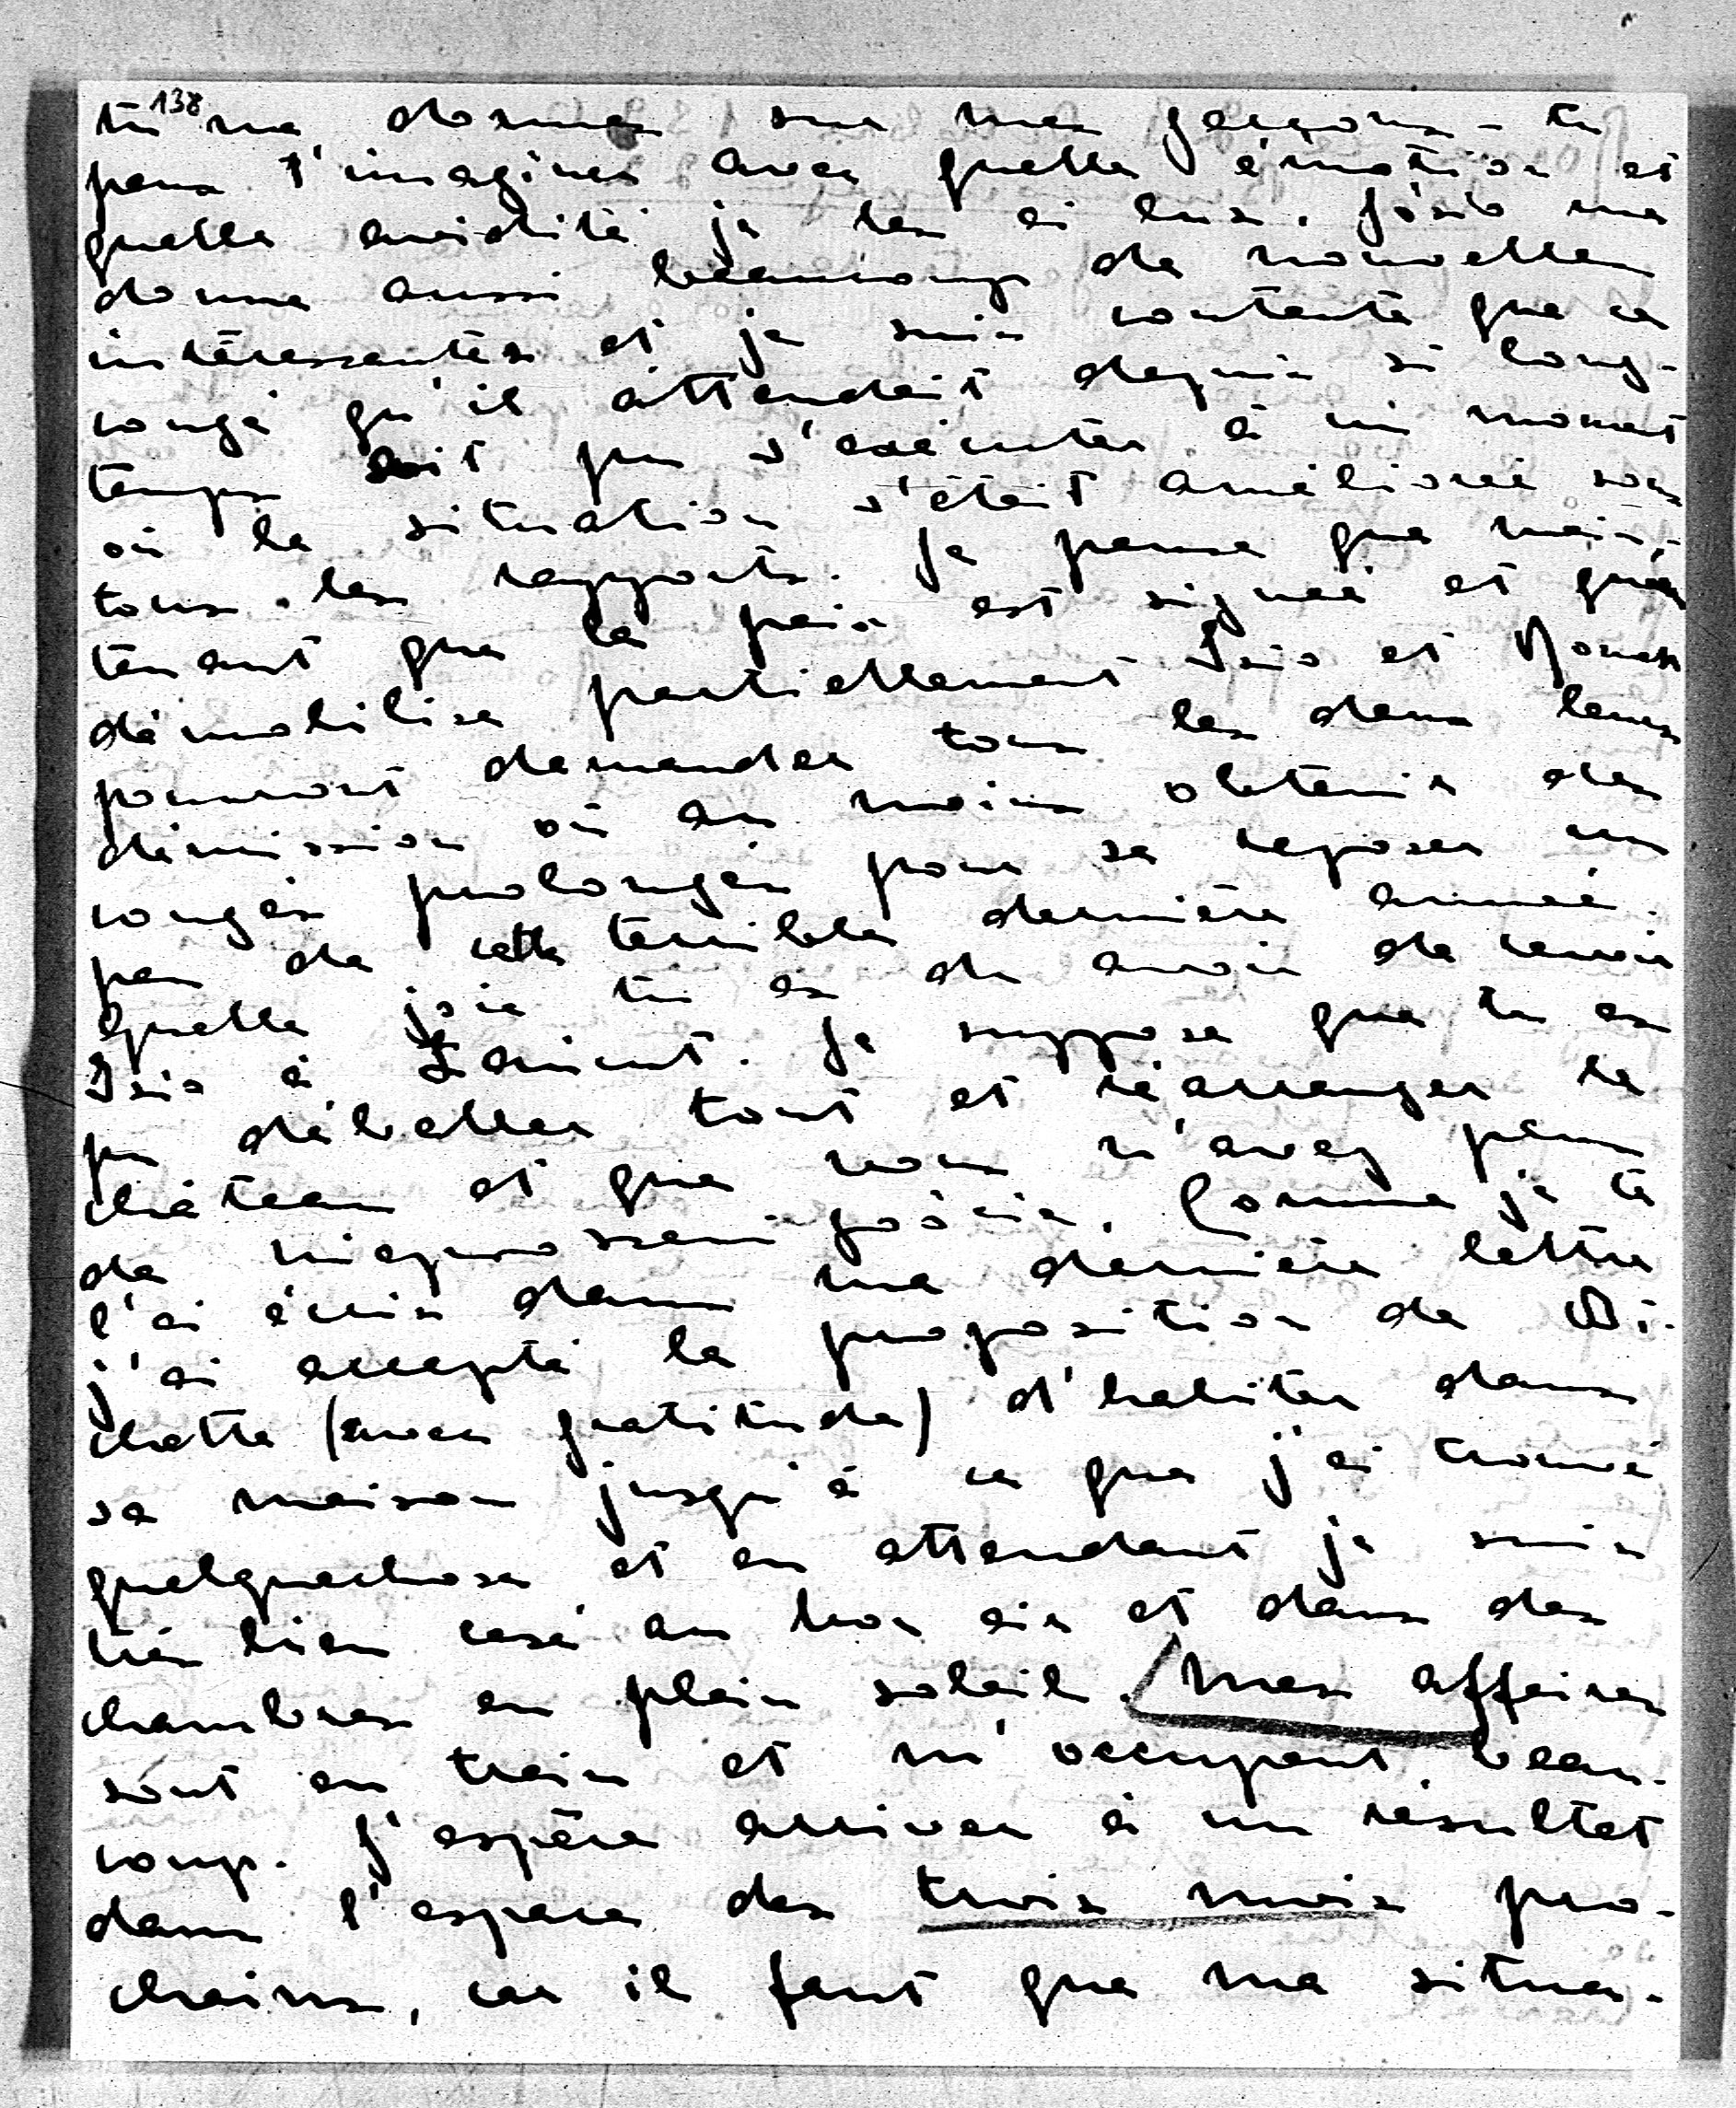 138
tu me donnes sur mes garçons - tu
peux t'imaginer avec quelle émotion et
quelle avidité je les ai lus. Józio me
donne aussi beaucoup de nouvelles
intéressantes et je suis contente que ce
congé qu'il attendait depuis si long-
temps ait pu s'exécuter à un moment
où la situation s'était améliorée sous
tous les rapports. Je pense que main-
tenant que la paix est signée et qu'on
démobilise partiellement Józio et Roman
pourront demander tous les deux leurs
démission où au moins obtenir des
congés prolongés pour se reposer un
peu de cette terrible dernière année.
Quelle joie tu as du avoir de revoir
Józio à Łańcut. Je suppose que tu as
pu déballer tout et réarranger le
château et que vous n'avez plus
de nieproszeni goście. Comme je te
l'ai écris dans ma dernière lettre
j'ai accepté la proposition de Bi-
chette (avec gratitude) d'habiter dans
sa maison jusqu'à ce que j'ai trouvé
quelquechose et en attendant je suis
très bien casé au bon air et dans des
chambres en plein soleil. Mes affaires
sont en train et m'occupent beau-
coup. J'espère arriver à un résultat
dans l'espace des trois mois pro-
chains, car il faut que ma situa-